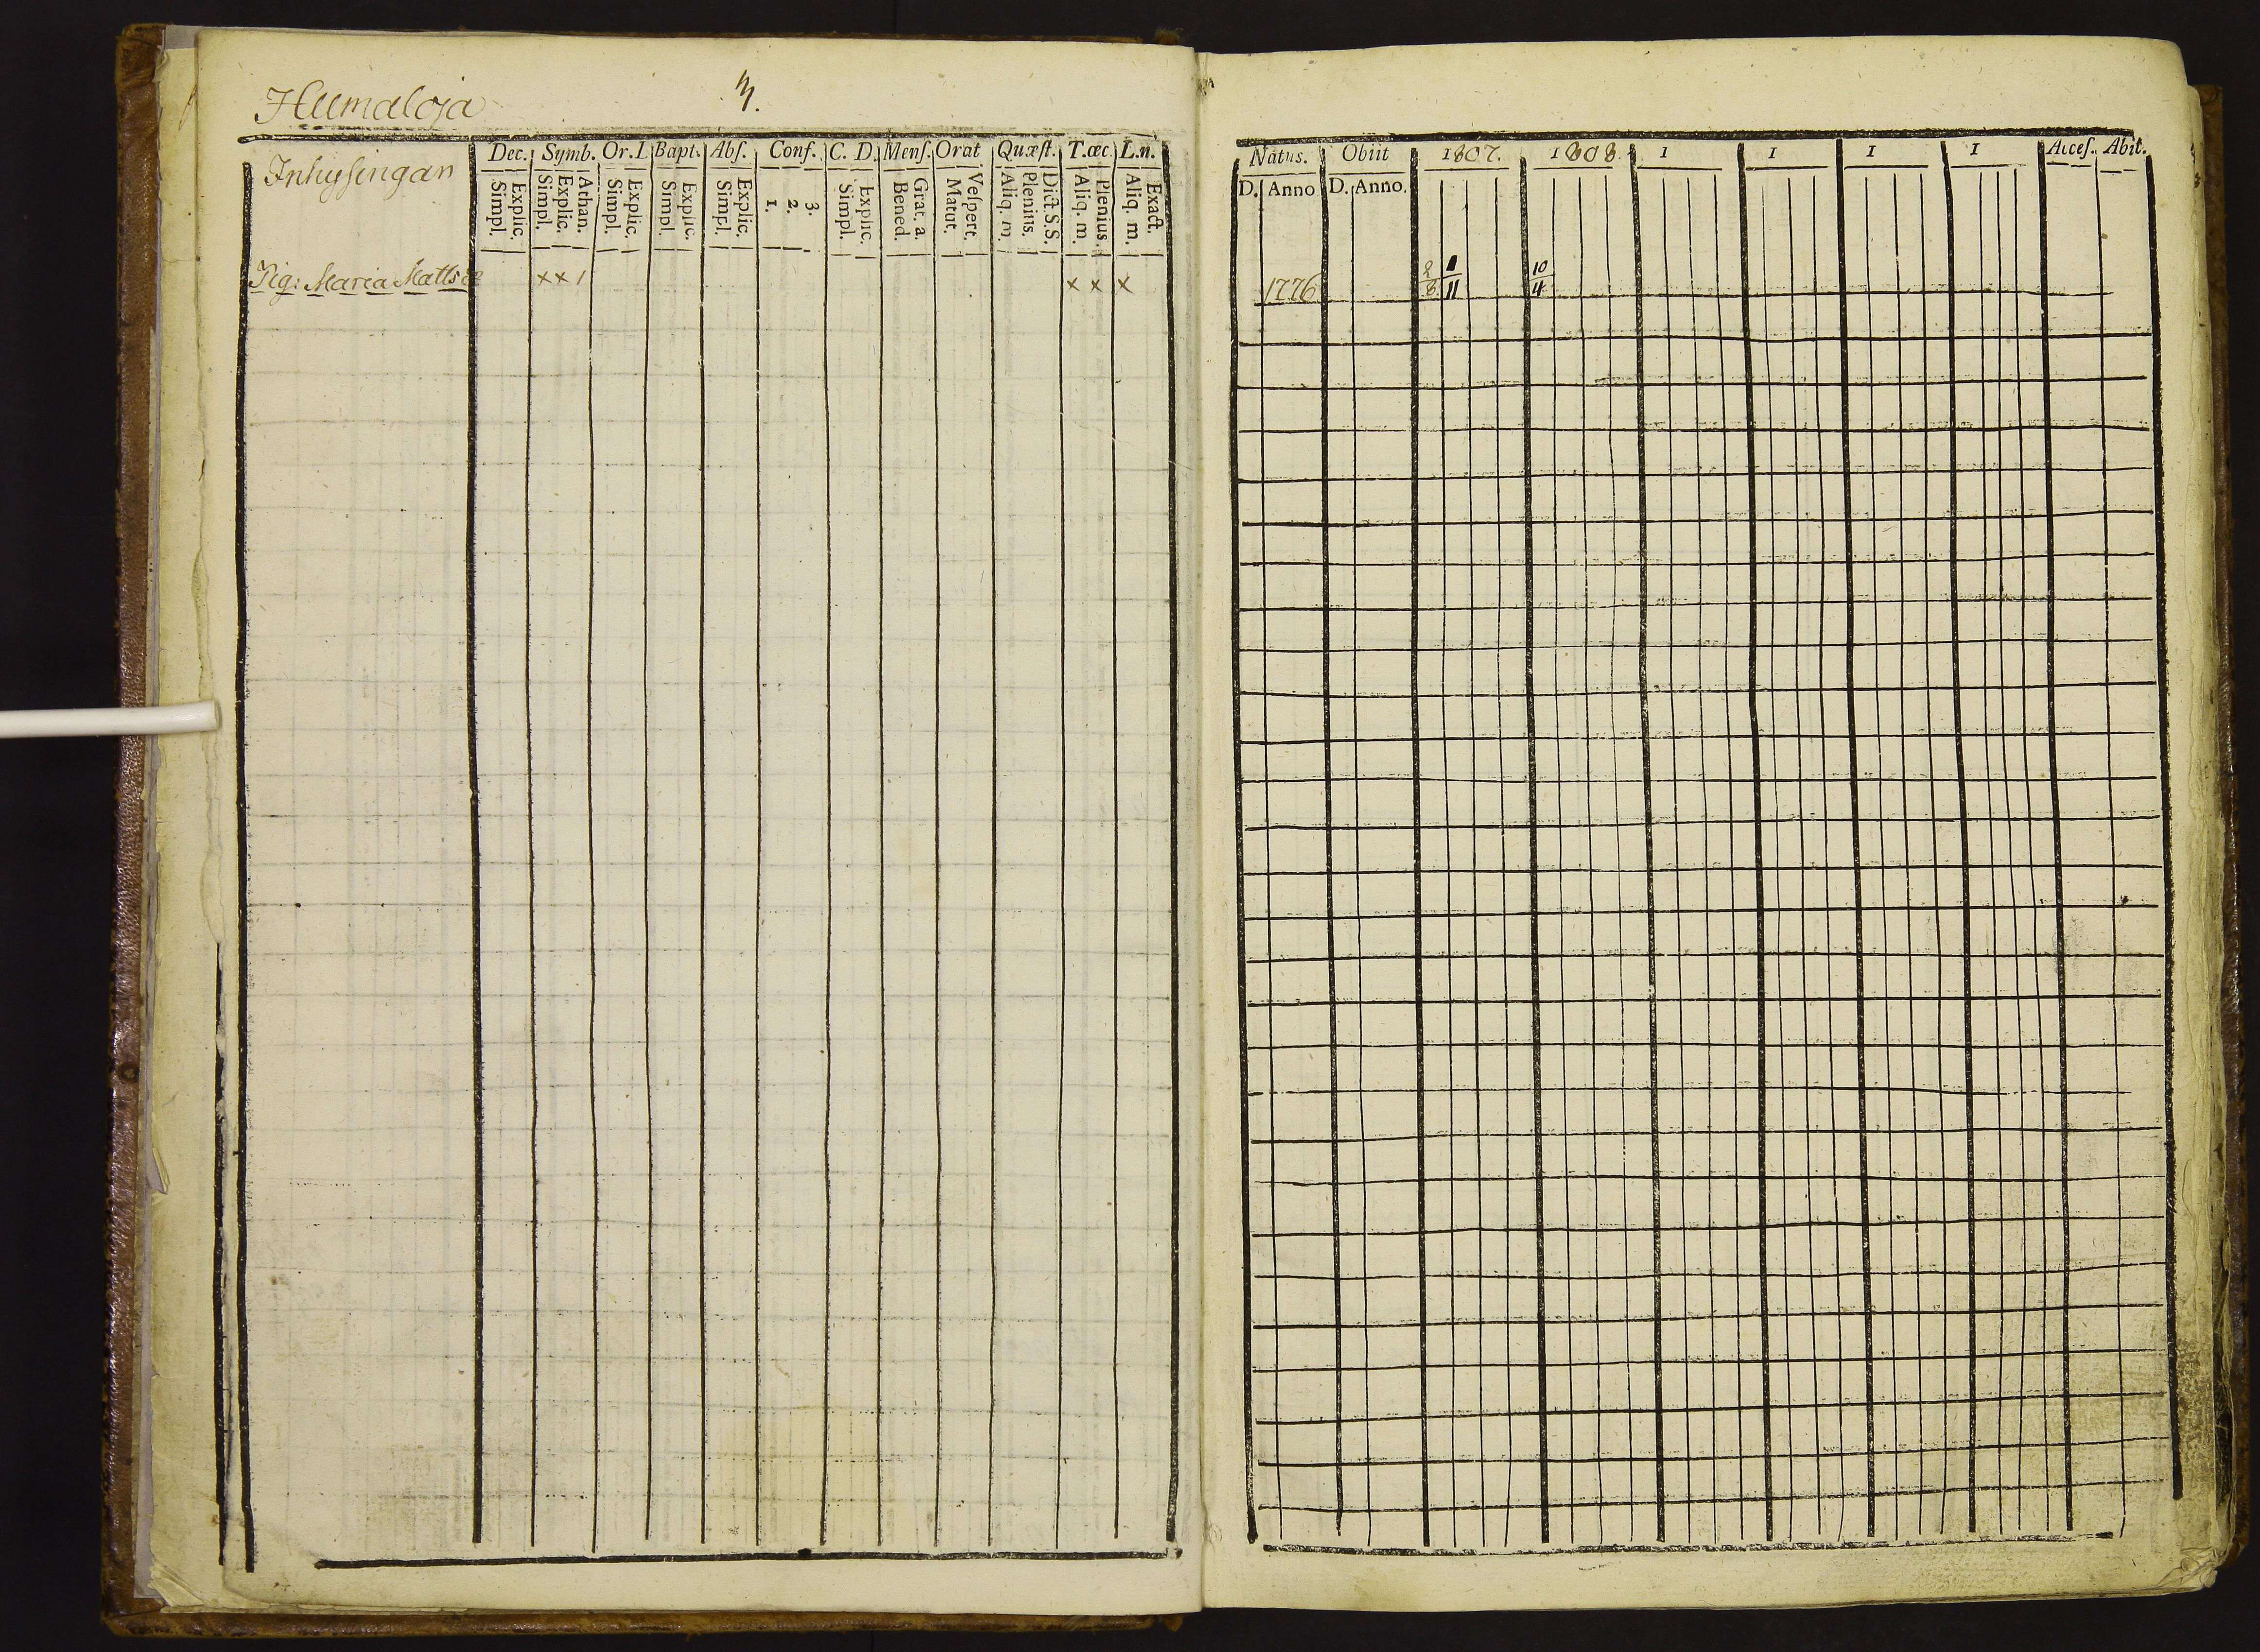 Humaloja
3.
Inhysingan
Dec. Symb. Or. L Bapt. Abſ. Conf. C. D. Menſ. Orat Quæſt. T. œc. L. n.
Explic. Simpl. Athan. Explic. Simpl. Explic. Simpl. Explic. Simpl. Explic. Simpl. 3. 2. 1. Explic. Simpl. Grat. a. Bened. Veſpert. Matut. Dict. S. S. Plenius. Aliq. m. Plenius. Aliq. m. Exact. Aliq. m.
Pig: Maria Matts dr xx1 x x x
Natus. Obiit 1807. 1808. 1 1 1 1 Acceſ. Abit.
D. Anno D. Anno.
1776 2/8 1/11 10/4